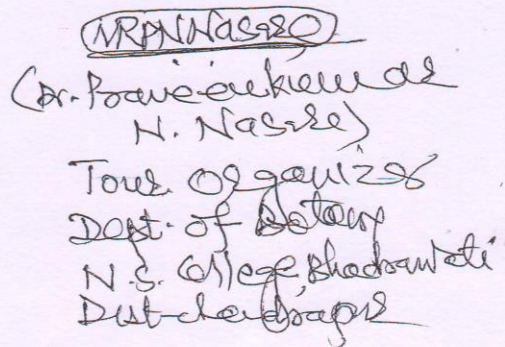 (Dr. Praveenkumar
N. Nasare)
Tour Organizer
Dept. of Botany
N.S. College, Bhadrawati
Dist-chandrapur